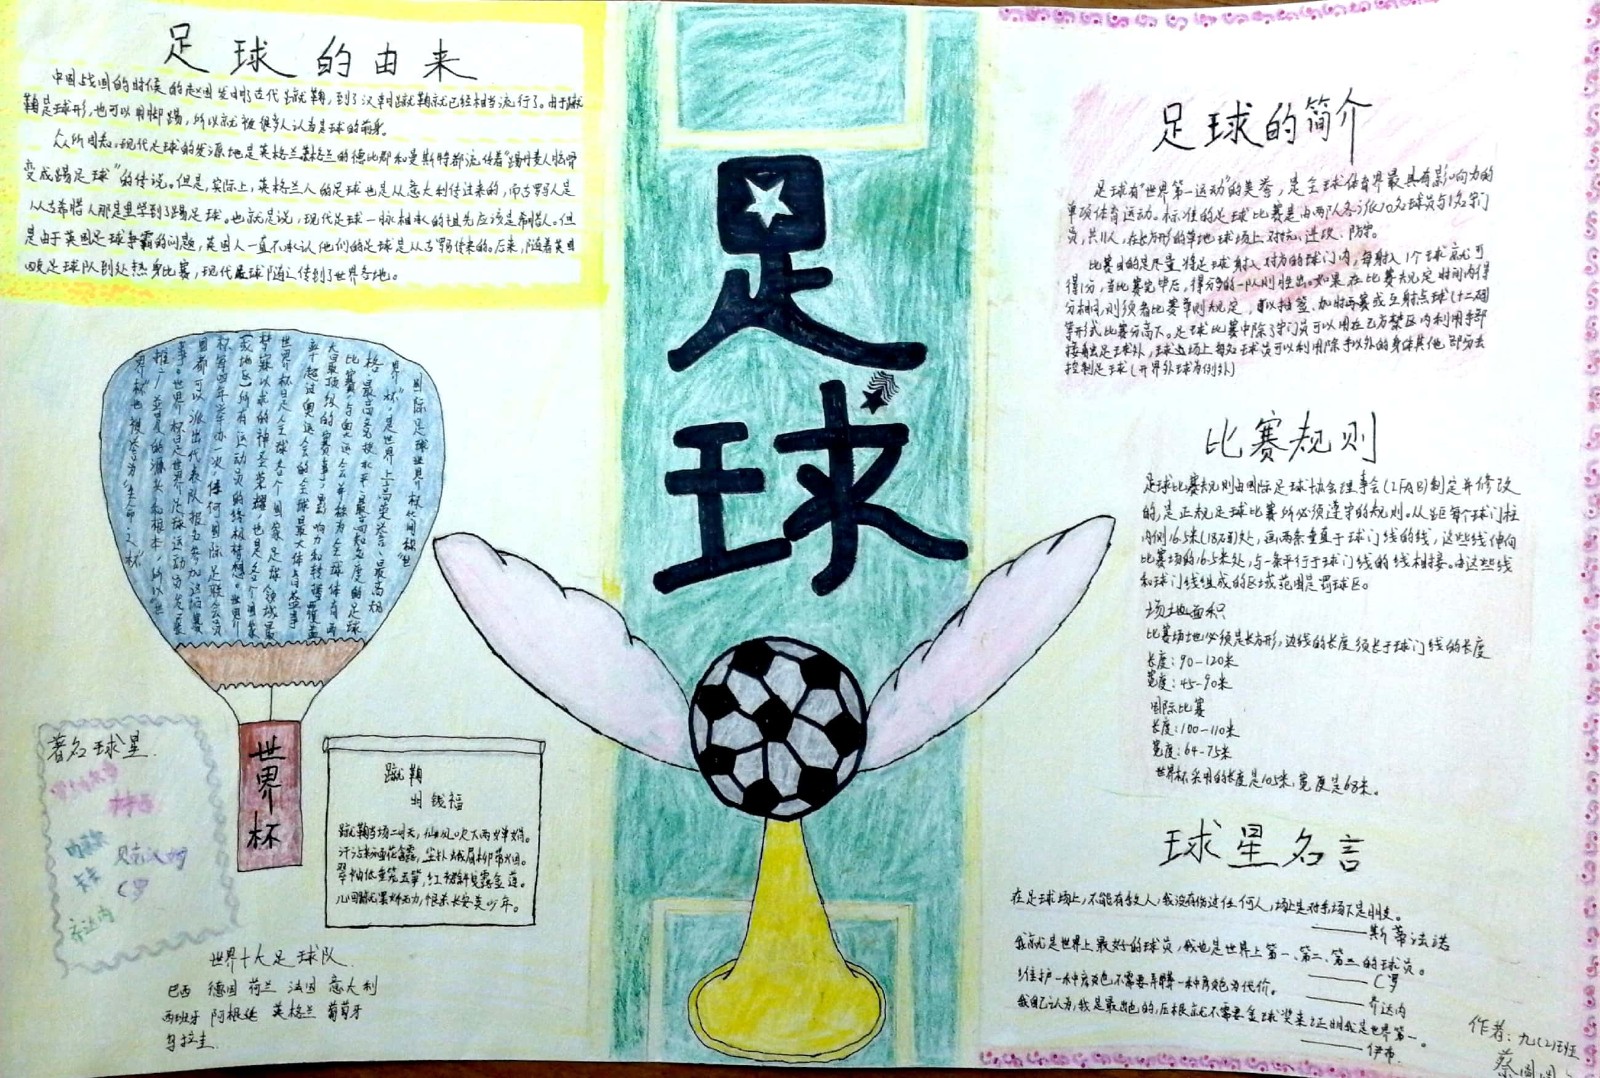 足球的由来
中国战国的时候的赵国发明了古代蹴鞠,到了汉朝蹴鞠就已经相当流行了。由于蹴
鞠是球形,也可以用脚踢,所以就被很多人认为足球的前身。
众所周知,现代足球的发源地是英格兰英格兰的德比郡和曼斯特都流传着"踢丹麦人
变成踢足球"的传说。但是,实际上,英格兰人的足球也是从意大利传过来的,而古罗马人是
从古希腊人那里学到了踢足球。也就是说,现代足球一脉相承的祖先应该是希腊人。但
是由于英国足球争霸的问题,英国人一直不承认他们的足球是从古罗马传来的。后来,随着英国
足球队到处热身比赛,现代足球随之传到了世界各地。
国际足球世界杯简称"世
界杯",是世界上最高荣誉、最高规
格、最高竞技水平、最高知名度的足球
比赛,与奥运会并称为全球体育两
大最顶级的赛事,影响力和转播覆盖
率超过奥运会的全球最大体育盛事
世界杯是全球各个国家足球领域最
梦寐以求的神圣荣耀,也是各个国家
(或地区)所有运动员的终极梦想。世界
杯每四年举办一次,任何国际足联会员
国都可以派出代表队报名参加这项赛
事。世界杯是世界足球运动
推广普及的源头和根本,所以"世
界杯"也被誉为"生命之杯"
世界杯
著名球星
梅西
内马尔
贝克汉姆
C罗
齐达内
蹴鞠
明 钱福
蹴鞠当场二月天,仙风吹下两婵娟。
汗沾粉面花含露,尘扑蛾眉柳带烟。
翠袖低垂笼玉笋,红裙斜曳露金莲。
几回蹴罢娇无力,恨杀长安美少年。
世界十大足球队
巴西 德国 荷兰 法国 意大利
西班牙 阿根廷 英格兰 葡萄牙
乌拉圭
足球
足球的简介
足球有"世界第一运动"的美誉,是全球体育界最具有影响力的
单项体育运动。标准的足球比赛是由两队各派10名球员与1名守门
员,共11人,在长方形的草地球场上对抗、进攻、防守。
比赛目的是尽量将足球射入对方的球门内,每射入1个球就可
得1分,当比赛完毕后,得分多的一队则胜出。如果在比赛规定时间内得
分相同,则须看比赛章则规定,可以抽签、加时再赛或互射点球(十二码)
等形式比赛分高下。足球比赛中除了守门员可以用在己方禁区内利用手部
接触足球外,球场上每名球员可以利用除手以外的身体其他部分去
控制足球(开界外球为例外)
比赛规则
足球比赛规则由国际足球协会理事会(IFAB)制定并修改
的,是正规足球比赛所必须遵守的规则。从距每个球门柱
内侧16.5米(18码)处,画两条垂直于球门线的线,这些线伸向
比赛场内16.5米处,与一条平行于球门线的线相接。由这些线
和球门线组成的区域范围是罚球区。
场地面积
比赛场地必须是长方形,边线的长度须长于球门线的长度
长度:90-120米
宽度:45-90米
国际比赛
长度:100-110米
宽度:64-75米
世界杯采用的长度是105米,宽度是68米。
球星名言
在足球场上,不能有敌人,我没有伤过任何人,场上是对手场下是朋友。
——斯蒂法诺
我就是世界上最好的球员,我也是世界上第一、第二、第三的球员。
——C罗
维护一种肤色不需要弄脏一种肤色为代价。
——齐达内
我自己认为,我是最出色的,压根就不需要金球奖来证明我是世界第一。
——伊布
作者:九(2)班